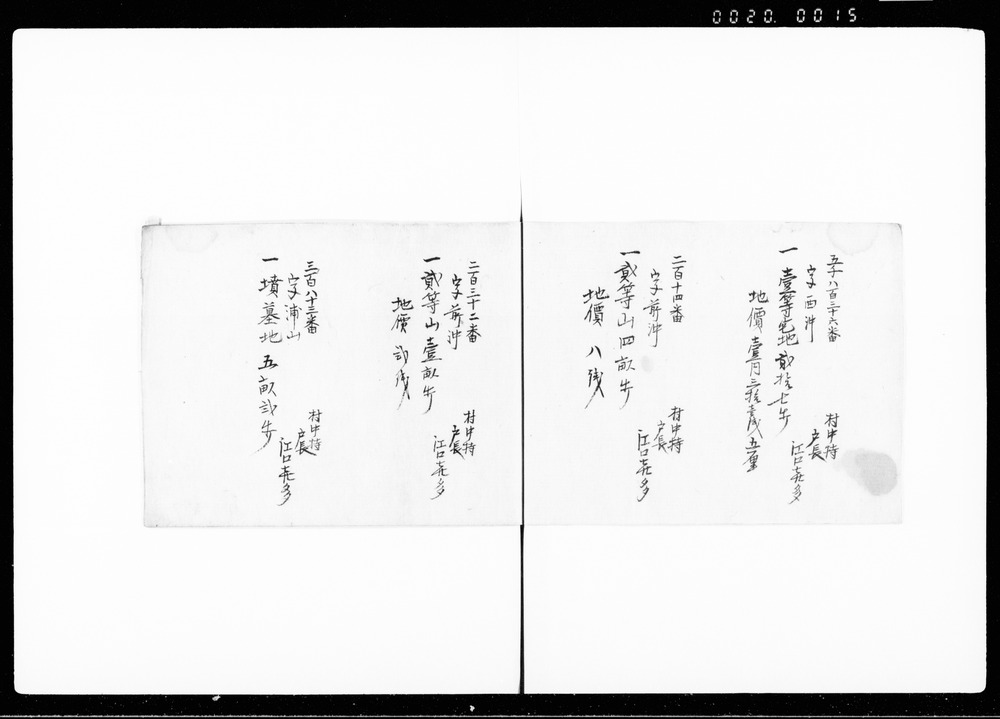 0020. 0015
五千八百三十六番
字西沖
一 壹等宅地 貳拾七歩
地價 壹円三拾壹戋五厘
村中持
戸長
江口㐂多
二百十四番
字前沖
一 貳等山四畝歩
地價 八戋
村中持
戸長
江口㐂多
二百三十二番
字前沖
一 貳等山壹畝歩
地價 弐戋
村中持
戸長
江口㐂多
三百八十三番
字浦山
一 墳墓地 五畝弐歩
村中持
戸長
江口㐂多